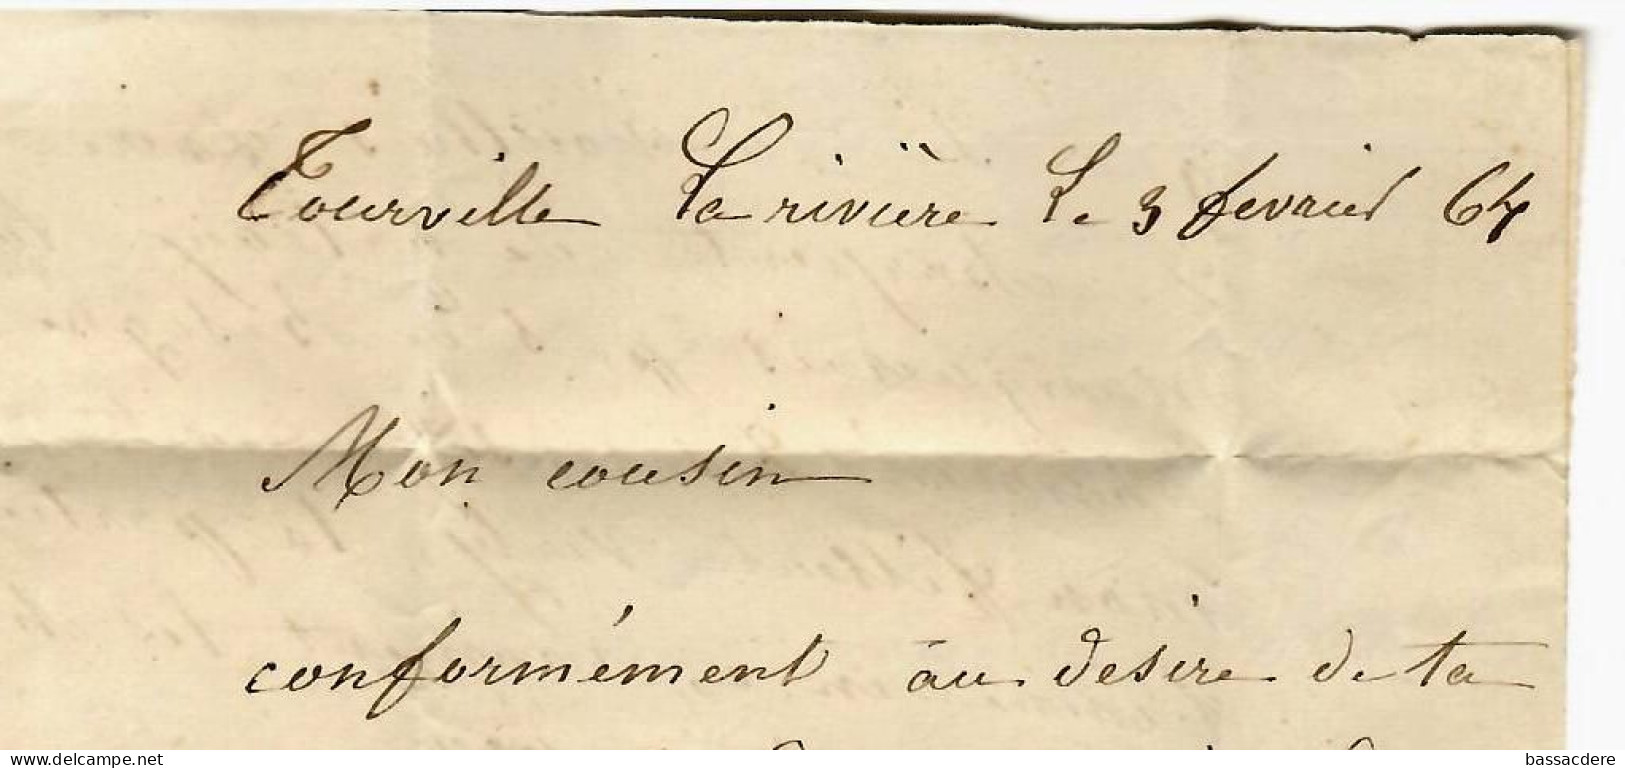 Tourville La rivière Le 3 fevrier 64
Mon cousin
conformément au desire de ta
delcampe.net
bassacdere